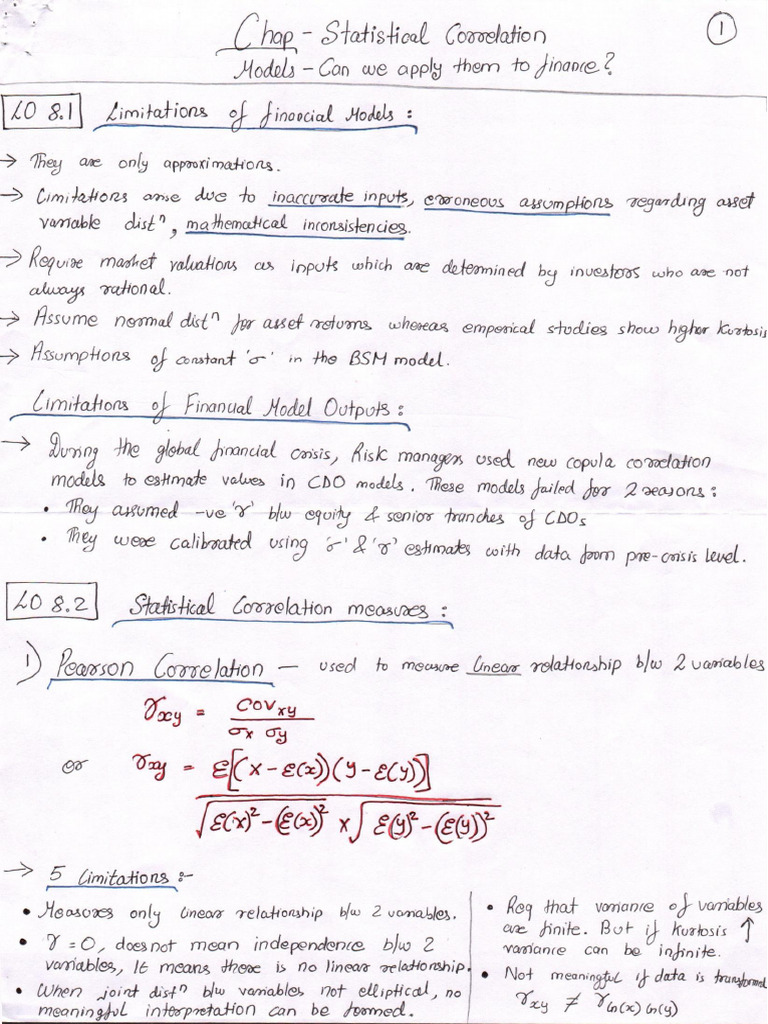 Chap - Statistical Correlation
1
Models - Can we apply them to finance?
LO 8.1 Limitations of financial Models :
→ They are only approximations.
→ Limitations arise due to inaccurate inputs, erroneous assumptions regarding asset
variable distⁿ, mathematical inconsistencies.
→ Require market valuations as inputs which are determined by investors who are not
always rational.
→ Assume normal distⁿ for asset returns whereas emperical studies show higher kurtosis
→ Assumptions of constant 'σ' in the BSM model.
Limitations of Financial Model Outputs :
→ During the global financial crisis, Risk managers used new copula correlation
models to estimate values in CDO models. These models failed for 2 reasons :
• They assumed -ve 'r' b/w equity & senior tranches of CDOs
• They were calibrated using 'σ' & 'r' estimates with data from pre-crisis level.
LO 8.2 Statistical Correlation measures :
1) Pearson Correlation — used to measure linear relationship b/w 2 variables
r_xy = COV_xy / σ_x σ_y
or r_xy = E[(X - E(x))(Y - E(y))]
√E(x)² - (E(x))² × √E(y)² - (E(y))²
→ 5 Limitations :-
• Measures only linear relationship b/w 2 variables.
• r = 0, does not mean independence b/w 2
variables, It means there is no linear relationship.
• When joint distⁿ b/w variables not elliptical, no
meaningful interpretation can be formed.
• Req that variance of variables
are finite. But if kurtosis ↑
variance can be infinite.
• Not meaningful if data is transformed
r_xy ≠ r_ln(x) ln(y)